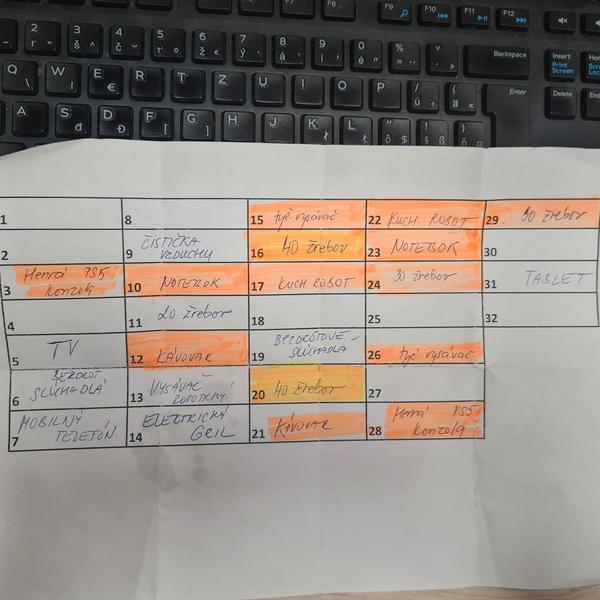 F9 F10 F11 F12
2 3 4 5 6 7 8 9 0 % Backspace Insert Print Screen
Q W E R T Z U I O P Enter Delete End
A S D F G H J K L
1 8 15 tyč. vysávač 22 KUCH. ROBOT 29 30 žrebov
2 9 ČISTIČKA VZDUCHU 16 40 žrebov 23 NOTEBOK 30
3 Herná PS5 Konzola 10 NOTEBOK 17 KUCH ROBOT 24 30 žrebov 31 TABLET
4 11 20 žrebov 18 25 32
5 TV 12 KÁVOVAR 19 BEZDRÔTOVÉ SLÚCHADLA 26 tyč. vysávač
6 BEZDRÔT. SLÚCHADLÁ 13 VYSÁVAČ ROBOTICKÝ 20 40 žrebov 27
7 MOBILNÝ TELEFÓN 14 ELEKTRICKÝ GRIL 21 KÁVOVAR 28 Herná PS5 Konzola